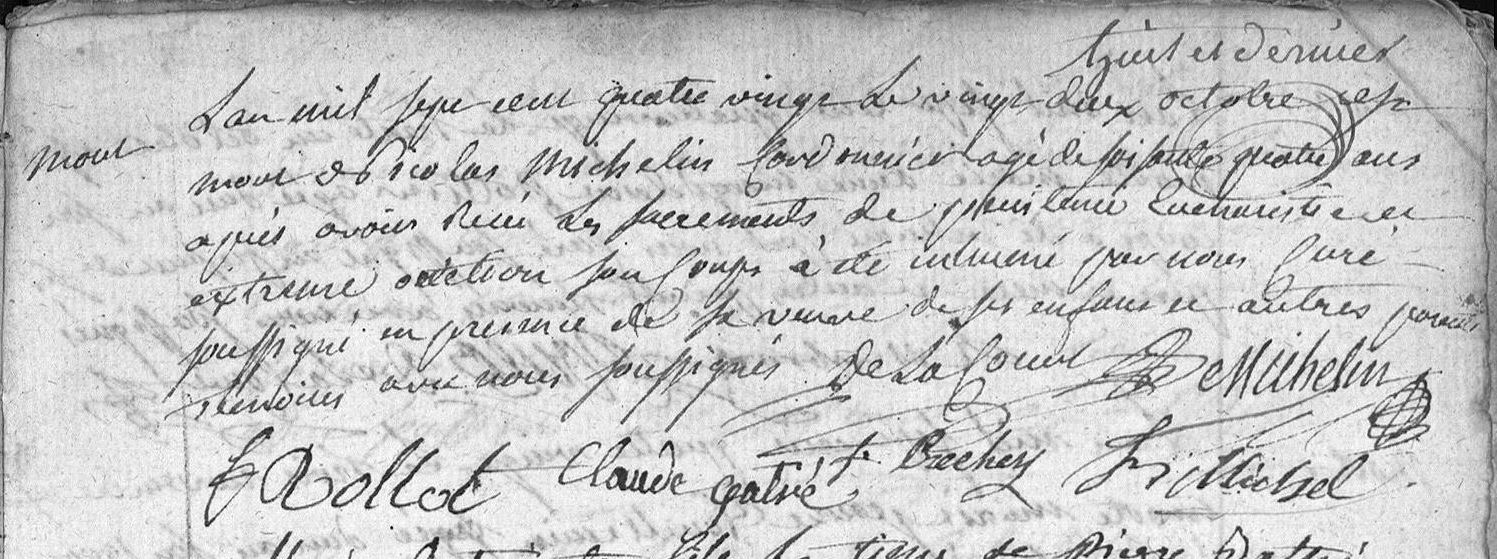 huit et dernier
L'an mil sept cent quatre vingt Le vingt deux octobre est
mort
mort Nicolas Michelin Cordonnier agé de soisante quatre ans
après avoir Recu Les sacrements de penitence Eucharistie et
extreme onction son Corps à été inhumé par nous Curé
soussigné en presence de sa veuve de ses enfans et autres parents
temoins avec nous soussignés DeLaCourt Michelin
Rollot Claude gatré Bachey Michel
de Pierre